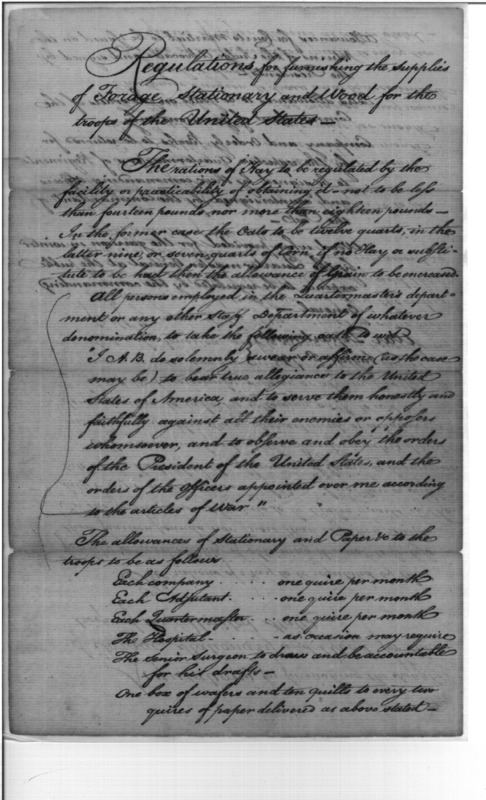 Regulations for furnishing the supplies
of Forage, Stationary and Wood for the
troops of the United States —
The rations of Hay to be regulated by the
facility or practicability of obtaining it – not to be less
than fourteen pounds nor more than eighteen pounds —
In the former case the Oats to be twelve quarts, in the
latter nine, or seven quarts of Corn, if no Hay or substi-
tute to be had then the allowance of Grain to be encreased
All persons employed in the Quartermasters depart-
ment or any other Staff Department of whatever
denomination, to take the following oath To wit
"I A.B. do solemnly swear or affirm (as the case
may be) to bear true allegiance to the United
States of America, and to serve them honestly and
faithfully against all their enemies or oppofers
whomsoever, and to observe and obey the orders
of the President of the United States, and the
orders of the Officers appointed over me according
to the articles of War"
The allowances of Stationary and Paper &c to the
troops to be as follows
Each company . . . . one quire per month
Each Adjutant . . . one quire per month
Each Quartermaster . . one quire per month
The Hospital . . . — as occasion may require
The senior Surgeon to draw and be accountable
for his drafts —
One box of wafers and ten quills to every two
quires of paper delivered as above stated —